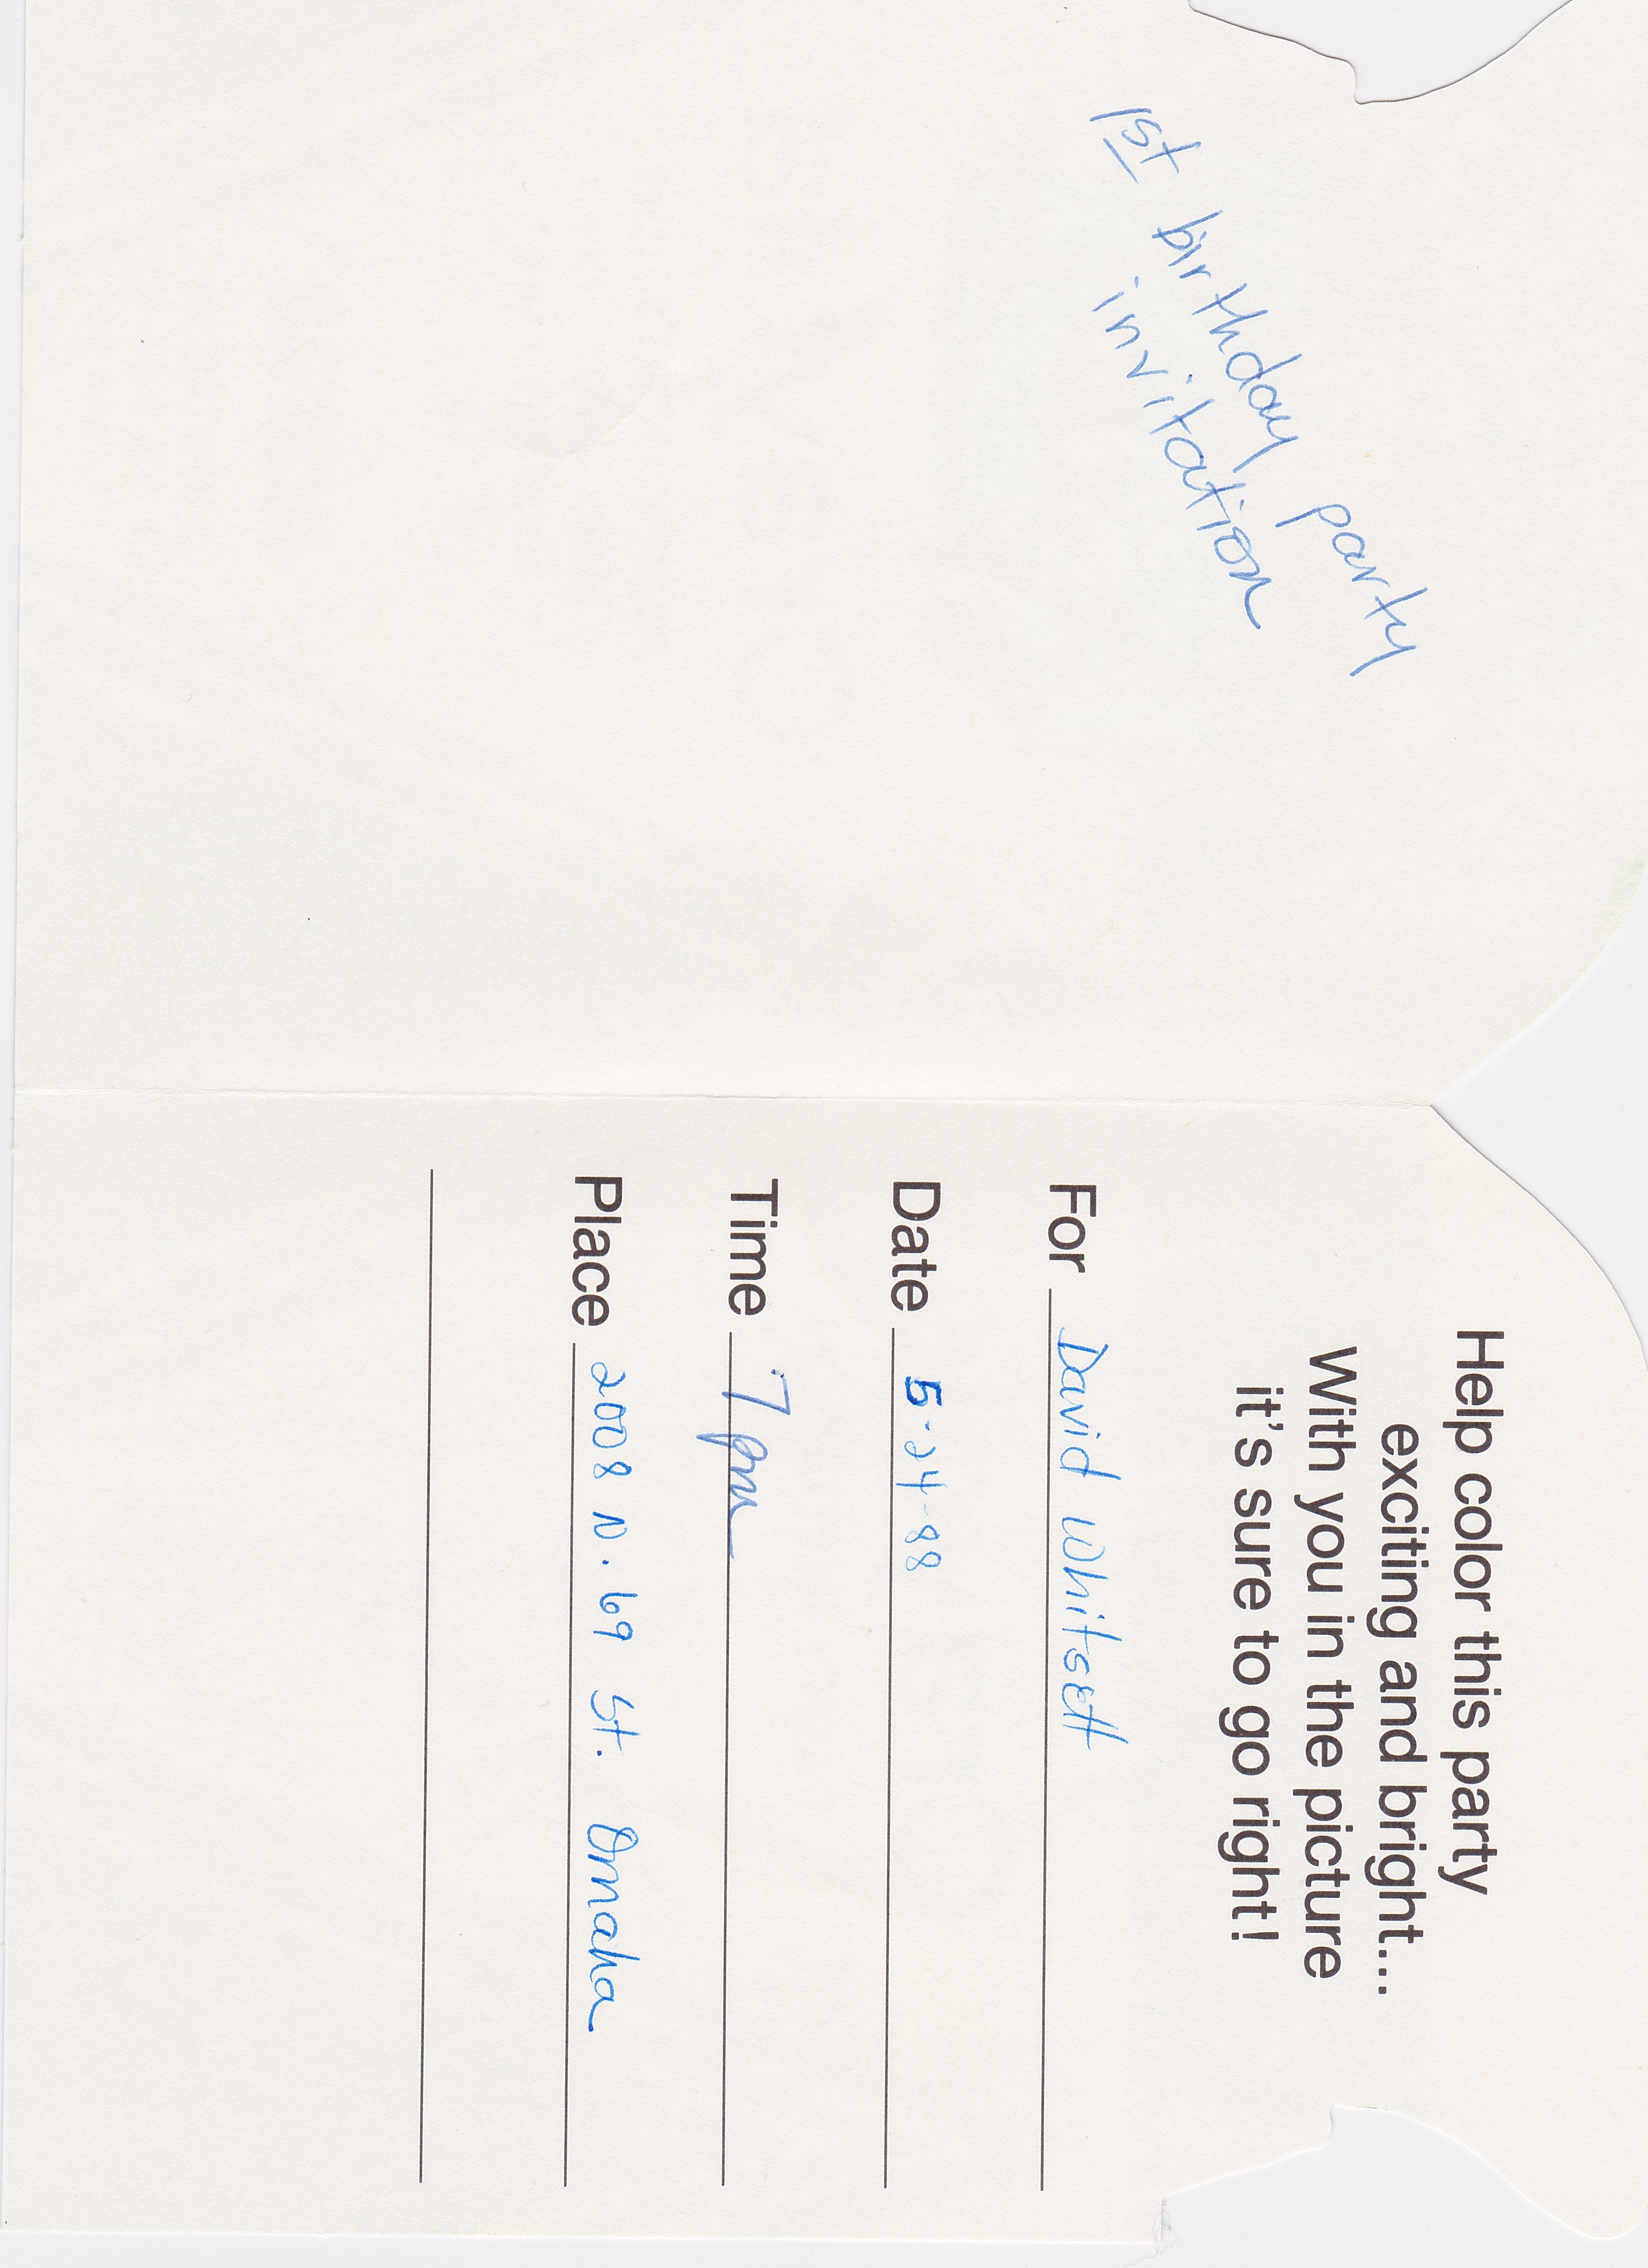 1st birthday party
invitation
Help color this party
exciting and bright...
With you in the picture
it's sure to go right!
For David Whitsett
Date 5-24-88
Time 7 pm
Place 2008 N. 69 St. Omaha